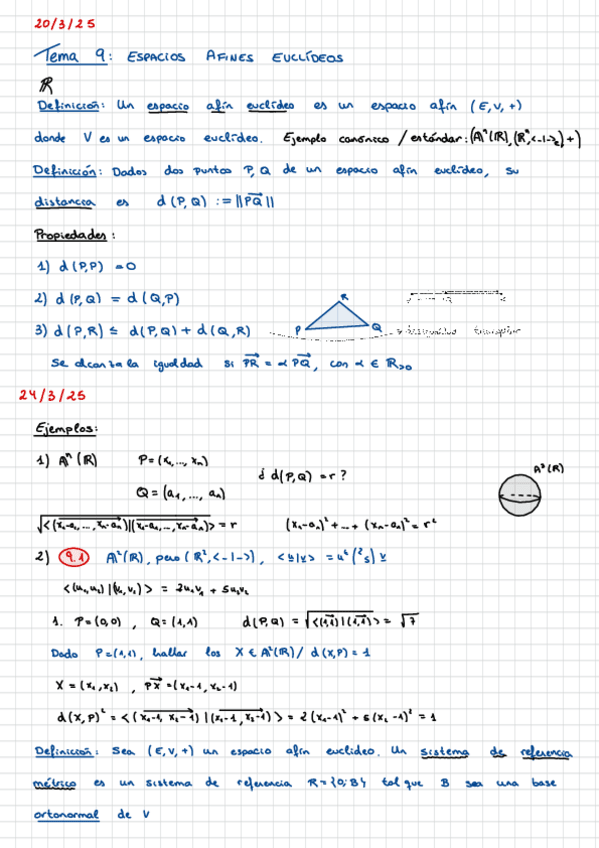 20/3/25
Tema 9: ESPACIOS AFINES EUCLÍDEOS
ℝ
Definición: Un espacio afín euclídeo es un espacio afín (E,V,+)
donde V es un espacio euclídeo. Ejemplo canónico / estándar: (𝔸ⁿ(ℝ), (ℝⁿ,<-|->ₑ) +)
Definición: Dados dos puntos P, Q de un espacio afín euclídeo, su
distancia es d(P,Q) := ||PQ||
Propiedades:
1) d(P,P) = 0
2) d(P,Q) = d(Q,P)
3) d(P,R) ≤ d(P,Q) + d(Q,R)
R
P
Q
Se alcanza la igualdad si PR = α PQ, con α ∈ ℝ>0
24/3/25
Ejemplos:
1) 𝔸ⁿ(ℝ) P=(x₁,...,xₙ)
Q=(a₁,...,aₙ)
¿ d(P,Q) = r ?
A³(ℝ)
√<(x₁-a₁,...,xₙ-aₙ)|(x₁-a₁,...,xₙ-aₙ)> = r (x₁-a₁)² + ... + (xₙ-aₙ)² = r²
2) 9.1 A²(ℝ), pero (ℝ²,<-|->), <u|v> = uᵗ(² ₅) v
<(u₁,u₂)|(v₁,v₂)> = 2u₁v₁ + 5u₂v₂
1. P=(0,0), Q=(1,1) d(P,Q) = √<(1,1)|(1,1)> = √7
Dado P=(1,1), hallar los X ∈ A²(ℝ) / d(X,P) = 1
X = (x₁,x₂), PX = (x₁-1, x₂-1)
d(X,P)² = <(x₁-1, x₂-1)|(x₁-1, x₂-1)> = 2(x₁-1)² + 5(x₂-1)² = 1
Definición: Sea (E,V,+) un espacio afín euclídeo. Un sistema de referencia
métrico es un sistema de referencia R={O;B} tal que B sea una base
ortonormal de V